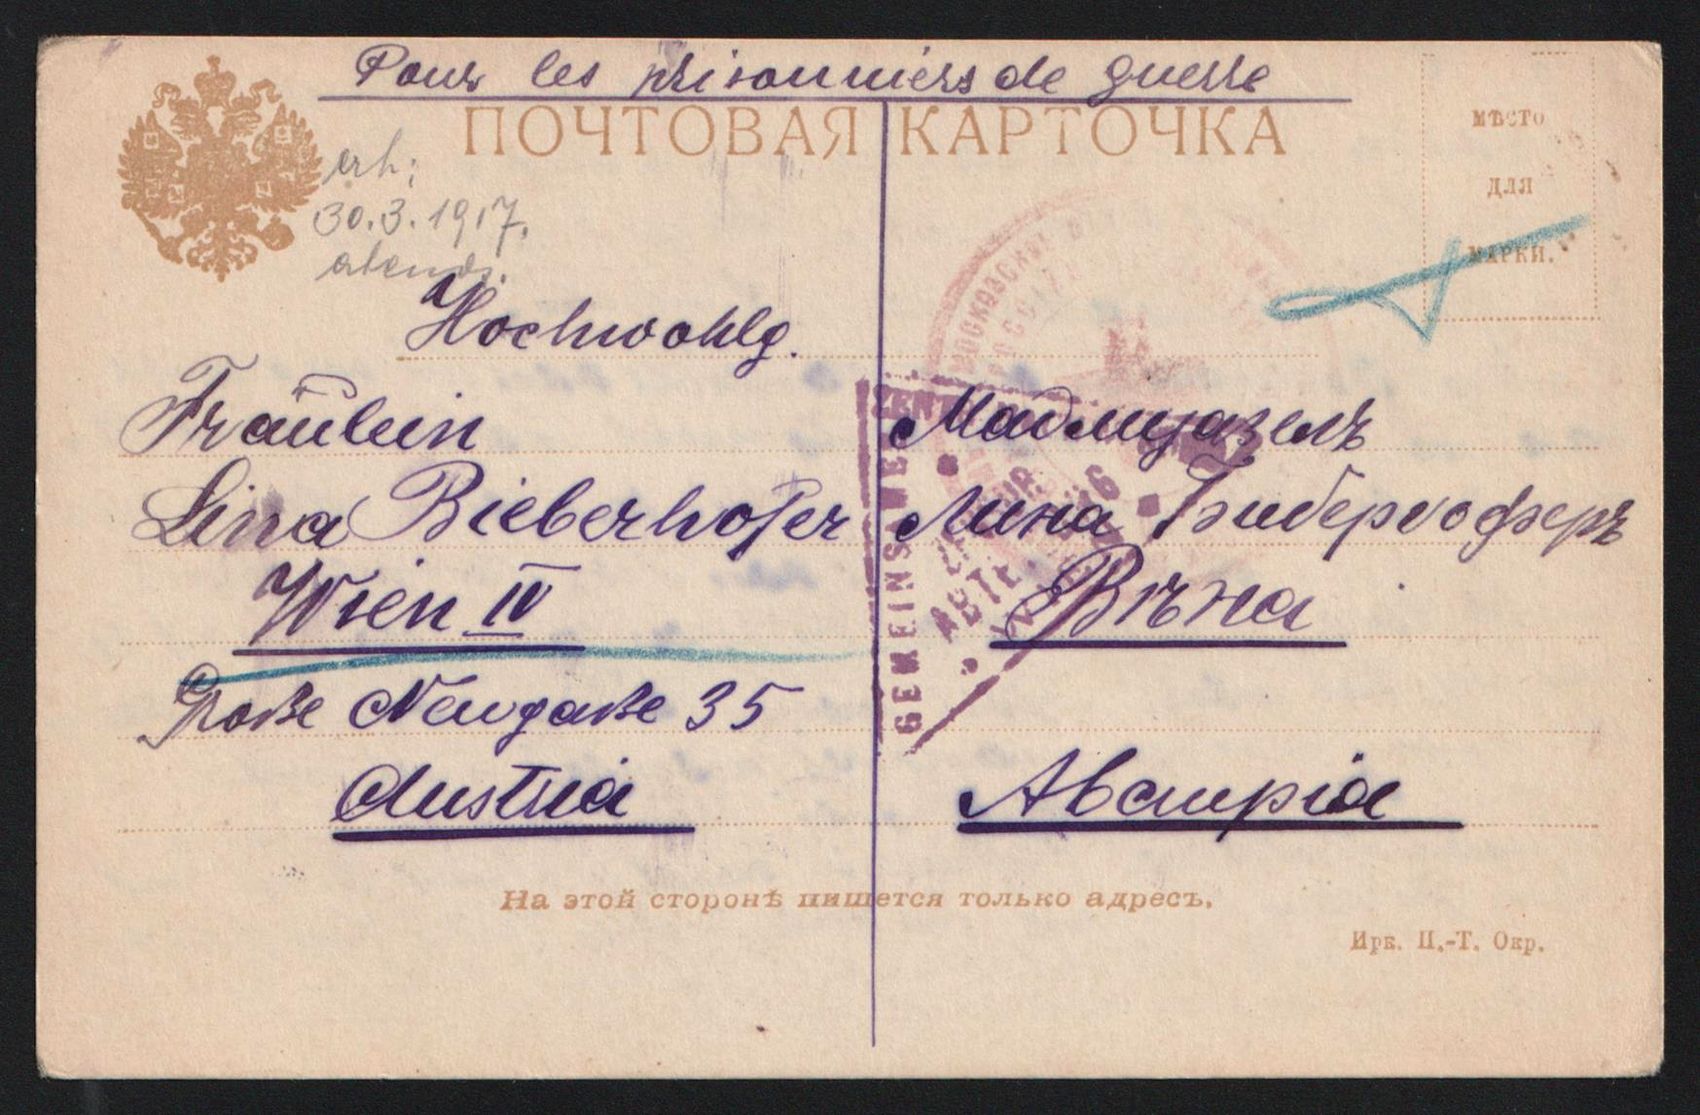 Pour les prisonniers de guerre
ПОЧТОВАЯ КАРТОЧКА
МѢСТО
ДЛЯ
МАРКИ.
erh:
30.3.1917.
abends.
Hochwohlg.
Fräulein
Lina Bieberhofer
Wien IV
Große Neugaße 35
Austria
Мадмуазель
Лина Биберхоферъ
Вѣна
Австрія
МОСКОВСКОЕ
GEMEINSAME
ZENT
ABTE
На этой сторонѣ пишется только адресъ.
Ирк. П.-Т. Окр.